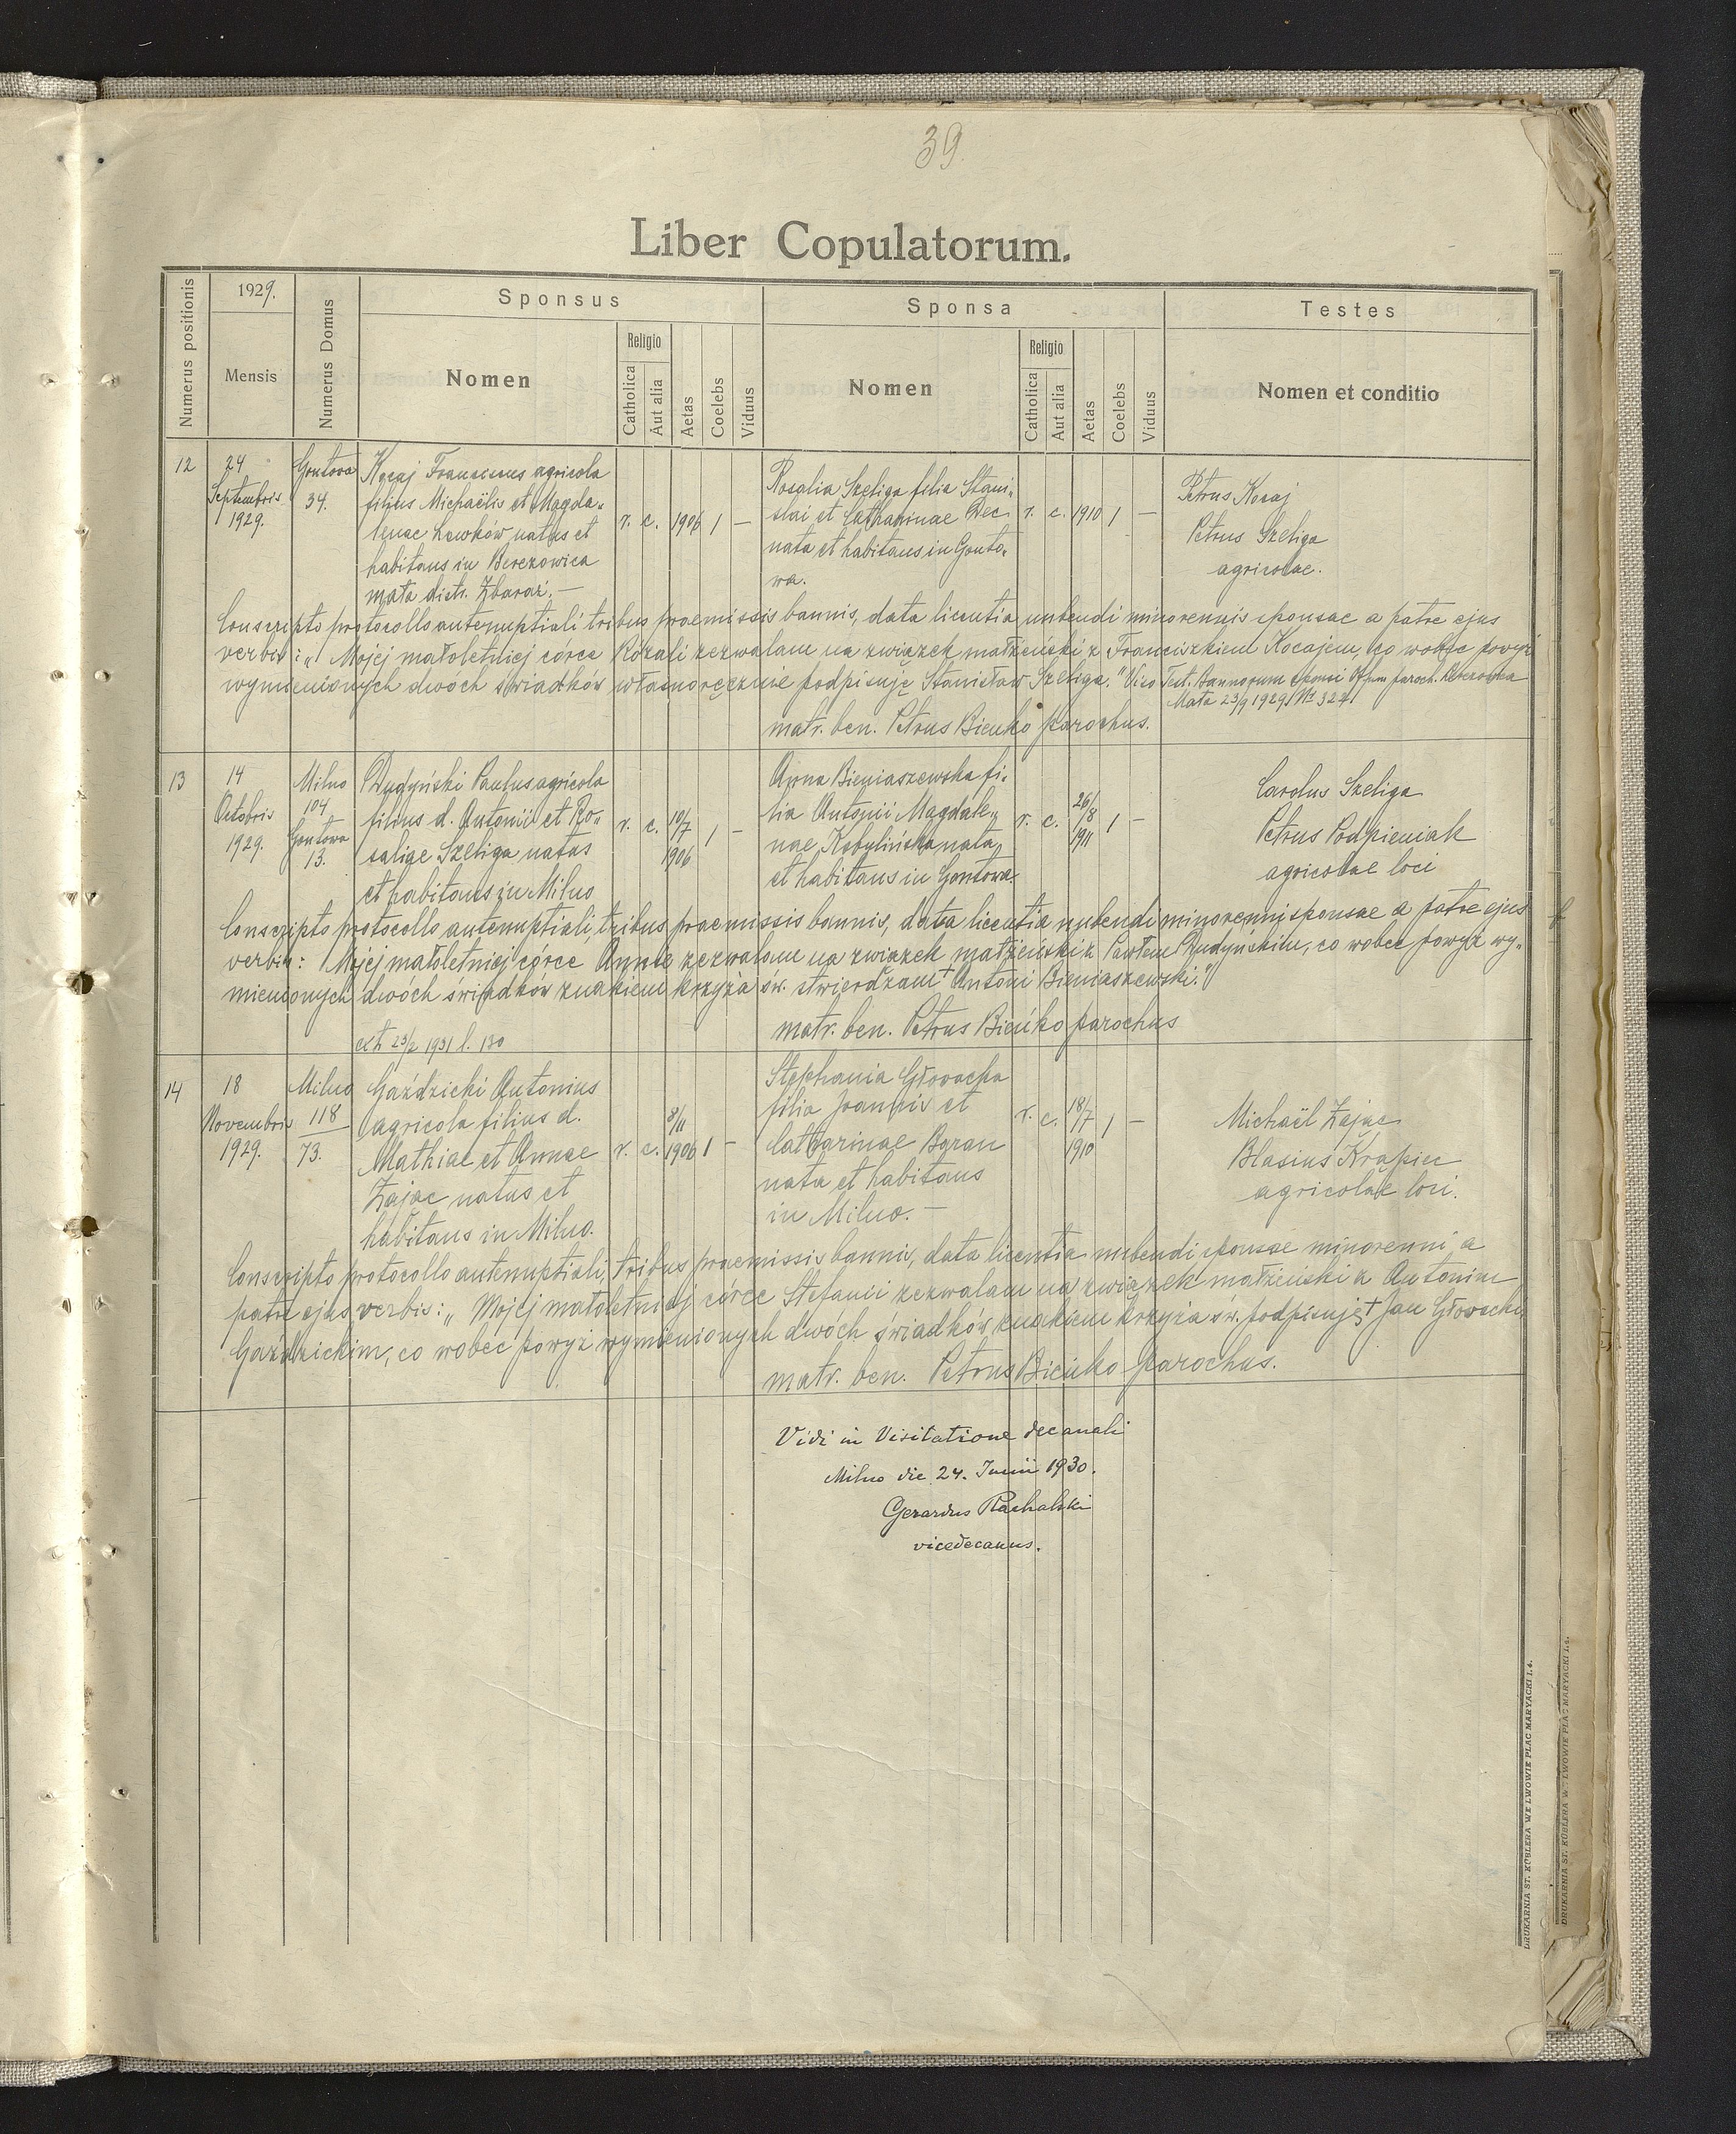 39.
Liber Copulatorum.
Numerus positionis
1929.
Mensis
Numerus Domus
Sponsus
Nomen
Religio
Catholica
Aut alia
Aetas
Coelebs
Viduus
Sponsa
Nomen
Religio
Catholica
Aut alia
Aetas
Coelebs
Viduus
Testes
Nomen et conditio
12
24
Septembris
1929.
Gontowa
34.
Kocaj Franciscus agricola
filius Michaëlis et Magda„
lenae Hawków natus et
habitans in Berezowica
mała distr. Zbaraż. —
r. c. 1906 1 —
Rosalia Szeliga filia Stani„
slai et Catharinae Dec
nata et habitans in Gonto„
wa.
r. c. 1910 1 —
Petrus Kocaj
Petrus Szeliga
agricolae.
Conscripto protocollo antenuptiali tribus praemissis bannis, data licentia nubendi minorennis sponsae a patre ejus
verbis: „ Mojej małoletniej córce Rozali zezwalam na związek małżeński z Franciszkiem Kocajem, co wobec powyż
wymienionych dwóch świadków własnoręcznie podpisuję Stanisław Szeliga." Vico Test. Bannorum sponsi Offum paroch. Berezowica
Mała 23/9 1929 № 327.
matr. ben. Petrus Bieńko parochus.
13
14
Octobris
1929.
Milno
104
Gontowa
13.
Dudyński Paulus agricola
filius d. Antonii et Ro„
saliae Szeliga natus
et habitans in Milno
r. c. 10/7 1906 1 —
Anna Bieniaszewska fi„
lia Antonii Magdale„
nae Kobylińska nata
et habitans in Gontowa.
r. c. 26/8 1911 1 —
Carolus Szeliga
Petrus Podpieniak
agricolae loci
Conscripto protocollo antenuptiali, tribus praemissis bannis, data licentia nubendi minorenni sponsae a patre ejus
verbis: Mojej małoletniej córce Annie zezwalam na związek małżeński z Pawłem Dudyńskim, co wobec powyż wy„
mienionych dwóch świadków znakiem krzyża św. stwierdzam † Antoni Bieniaszewski."
matr. ben. Petrus Bieńko parochus
ext 23/2 1931 l. 130
14
18
Novembris
1929.
Milno
118
73.
Gaździcki Antonius
agricola filius d.
Mathiae et Annae
Zając natus et
habitans in Milno.
r. c. 8/11 1906 1 —
Stephania Głowacka
filia Joannis et
Catharinae Baran
nata et habitans
in Milno. —
r. c. 18/7 1910 1 —
Michaël Zając
Blasius Krąpiec
agricolae loci.
Conscripto protocollo antenuptiali, tribus praemissis bannis, data licentia nubendi sponsae minorenni a
patre ejus verbis: „ Mojej małoletniej córce Stefanii zezwalam na związek małżeński z Antonim
Gaździckim, co wobec powyż wymienionych dwóch świadków znakiem krzyża św. podpisuję † Jan Głowacki
matr. ben. Petrus Bieńko parochus.
Vidi in Visitatione decanali
Milno die 24. Junii 1930.
Gerardus Rachalski
vicedecanus.
DRUKARNIA ST. KÜBLERA WE LWOWIE PLAC MARYACKI L 4.
DRUKARNIA ST. KÜBLERA WE LWOWIE PLAC MARYACKI L 4.